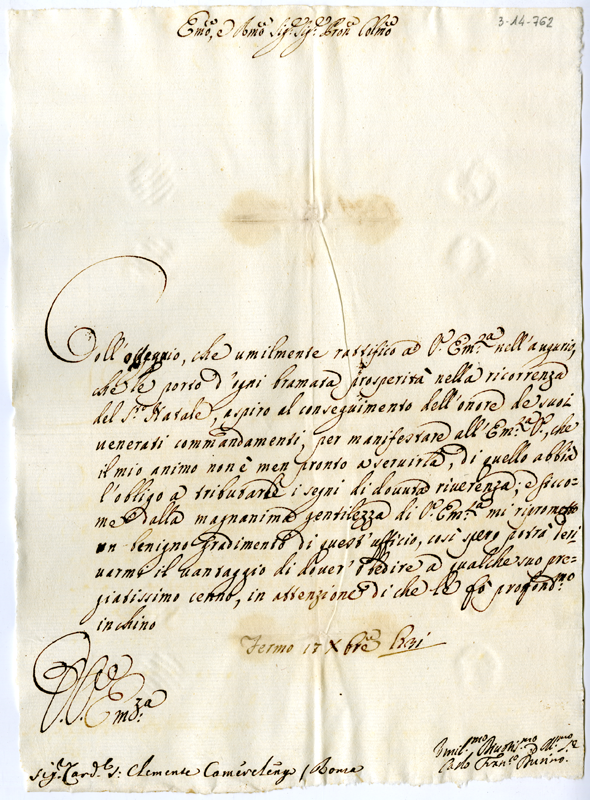 3-14-762
Emo, e Rmo Sigr, Sigr Pron Colmo
Coll'ossequio, che umilmente rattifico ad V. Emza nell'augurio,
che le porto d'ogni bramata prosperità nella ricorrenza
del S.to Natale, aspiro al conseguimento dell'onore de suoi
venerati commandamenti, per manifestare all'Emza V., che
il mio animo non è men pronto a servirla, di quello abbia
l'obligo a tributarle i segni di dovuta riverenza; e sicco-
me dalla magnanima gentilezza di V. Emza mi riprometto
un benigno gradimento di quest'ufficio, così spero potrà deri
varmi il vantaggio di dover' obbedire a qualche suo pre-
giatissimo cenno, in attenzione di che le fò profondmo
inchino
Fermo 17 Xbre
D. V. Emza
Sigr Card.le S: Clemente / Roma
Umil.mo Servre
Carlo Franco